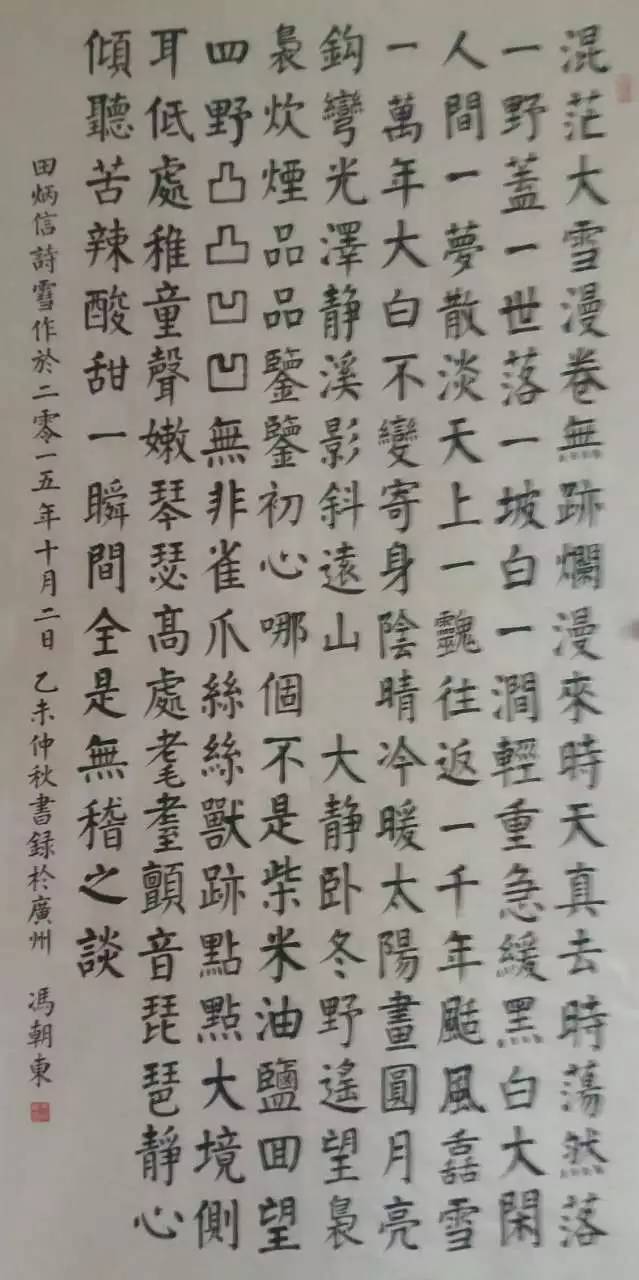 混茫大雪漫卷無跡爛漫來時天真去時蕩然落
一野蓋一世落一坡白一澗輕重急緩黑白大閑
人間一夢散淡天上一靈魂往返一千年颳風聶雪
一萬年大白不變寄身陰晴冷暖太陽畫圓月亮
鈎彎光澤静溪影斜遠山 大静卧冬野遙望裊
裊炊煙品品鑒鑒初心哪個不是柴米油鹽回望
四野凸凸凹凹無非雀爪絲絲獸跡點點大境側
耳低處稚童聲嫩琴瑟高處耄耋顫音琵琶静心
傾聽苦辣酸甜一瞬間全是無稽之談
田炳信詩雪作於二零一五年十月二日 乙未仲秋書録於廣州 馮朝東